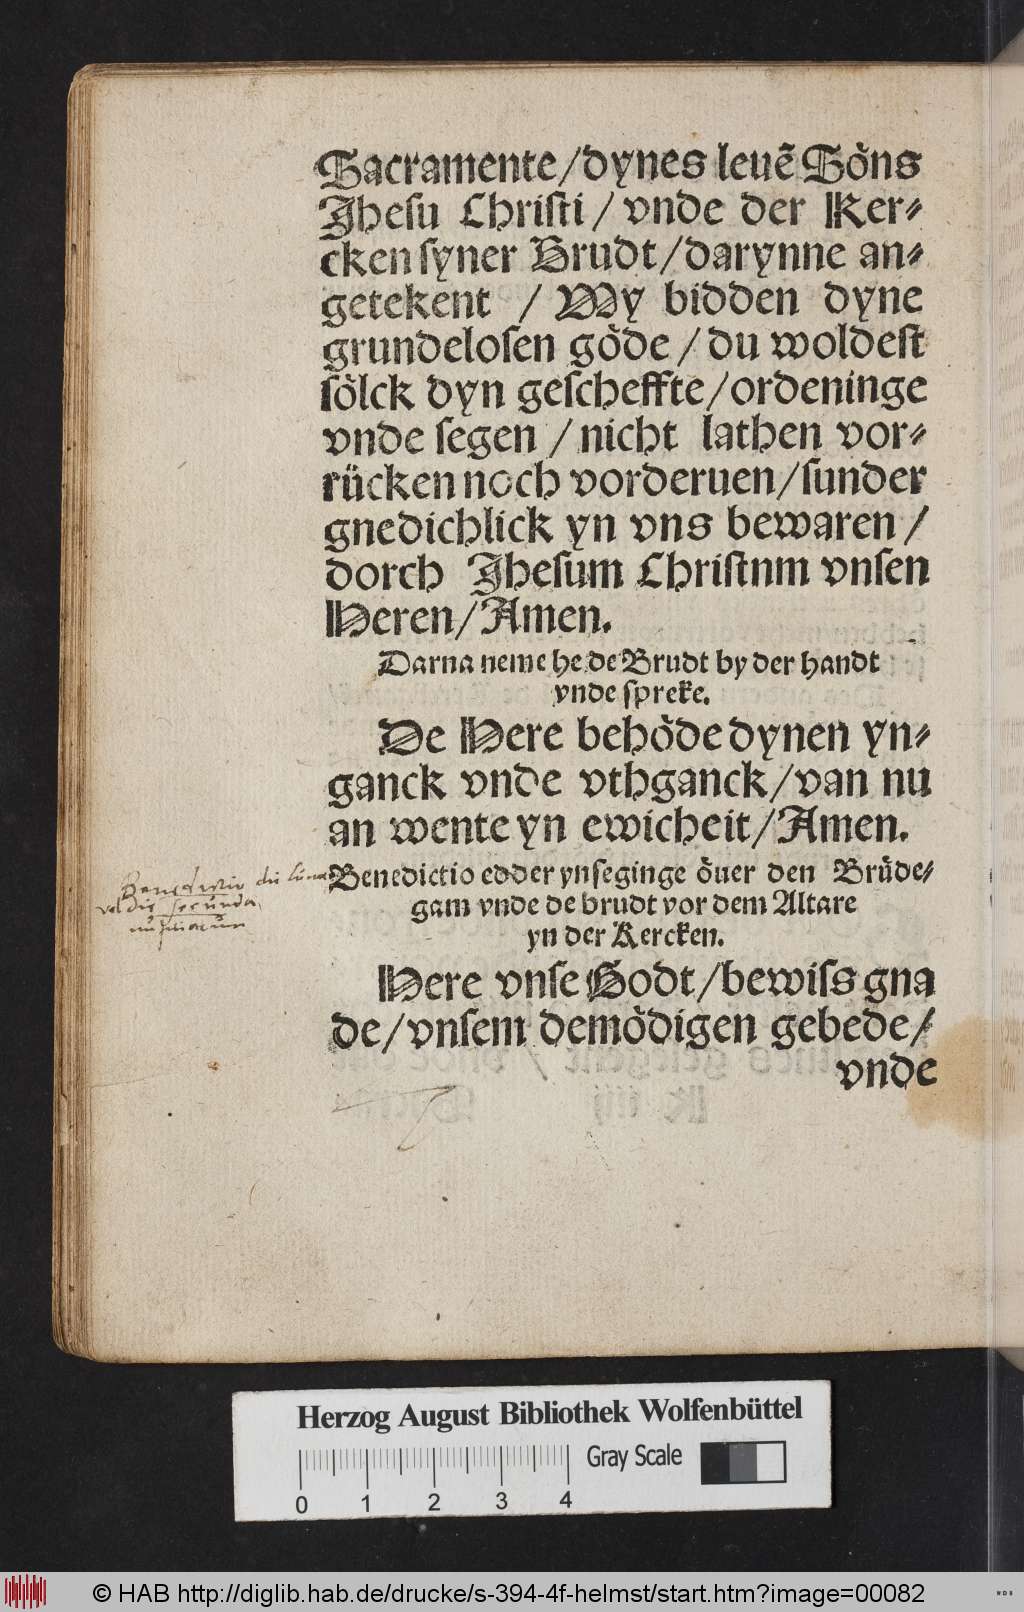 Sacramente/dynes leuẽ Sȯns
Jhesu Christi/vnde der Ker⸗
cken syner Brudt/darynne an⸗
getekent / Wy bidden dyne
grundelosen gȯde/du woldest
sȯlck dyn gescheffte/ordeninge
vnde segen/nicht lathen vor⸗
rücken noch vorderuen/sunder
gnedichlick yn vns bewaren/
dorch Jhesum Christnm vnsen
Heren/Amen.
Darna neme he de Brudt by der handt
vnde spreke.
De Here behȯde dynen yn⸗
ganck vnde vthganck/van nu
an wente yn ewicheit/Amen.
Benedictio edder ynseginge ȯuer den Brůde⸗
gam vnde de brudt vor dem Altare
yn der Kercken.
Here vnse Godt/bewiss gna
de/vnsem demȯdigen gebede/
vnde
vel die secunda
Herzog August Bibliothek Wolfenbüttel
Gray Scale
0 1 2 3 4
© HAB http://diglib.hab.de/drucke/s-394-4f-helmst/start.htm?image=00082